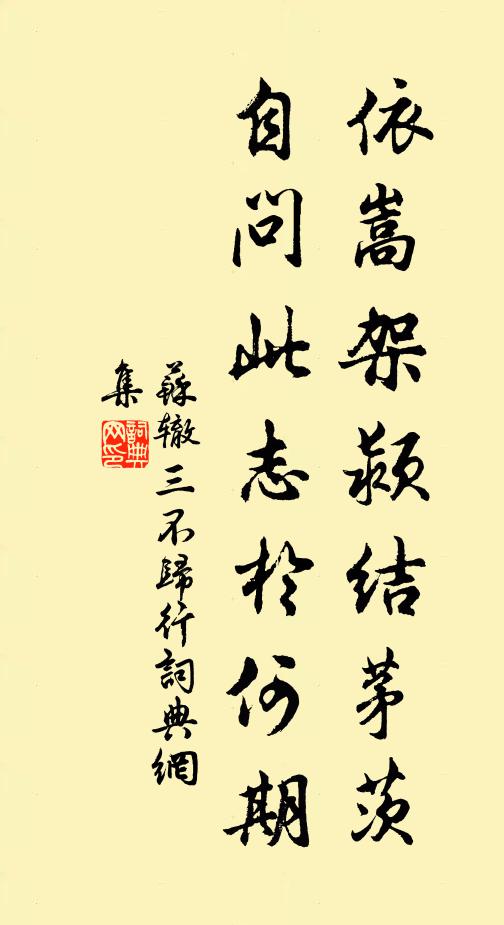 依嵩架颍結茅茨
自問此志於何期
蘇辙三不歸行詞典網
集
詞典网印